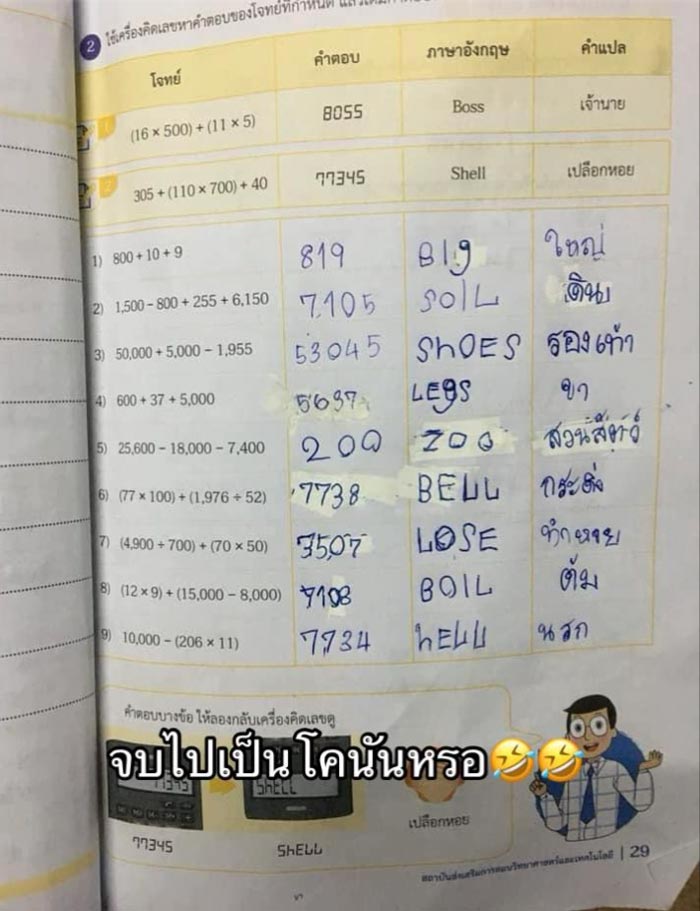 2 ใช้เครื่องคิดเลขหาคำตอบของโจทย์ที่กำหนด
โจทย์ คำตอบ ภาษาอังกฤษ คำแปล
1 (16 × 500) + (11 × 5) 8055 Boss เจ้านาย
2 305 + (110 × 700) + 40 77345 Shell เปลือกหอย
1) 800 + 10 + 9 819 BIg ใหญ่
2) 1,500 – 800 + 255 + 6,150 7,105 SOIL ดิน
3) 50,000 + 5,000 – 1,955 53045 ShOES รองเท้า
4) 600 + 37 + 5,000 5637 LEgS ขา
5) 25,600 – 18,000 – 7,400 200 ZOO สวนสัตว์
6) (77 × 100) + (1,976 ÷ 52) 7738 BELL กระดิ่ง
7) (4,900 ÷ 700) + (70 × 50) 3507 LOSE ทำหาย
8) (12 × 9) + (15,000 – 8,000) 7108 BOIL ต้ม
9) 10,000 – (206 × 11) 7734 hELL นรก
คำตอบบางข้อ ให้ลองกลับเครื่องคิดเลขดู
จบไปเป็นโคนันหรอ🤣🤣
77345 ShELL
77345 ShELL เปลือกหอย
สถาบันส่งเสริมการสอนวิทยาศาสตร์และเทคโนโลยี | 29